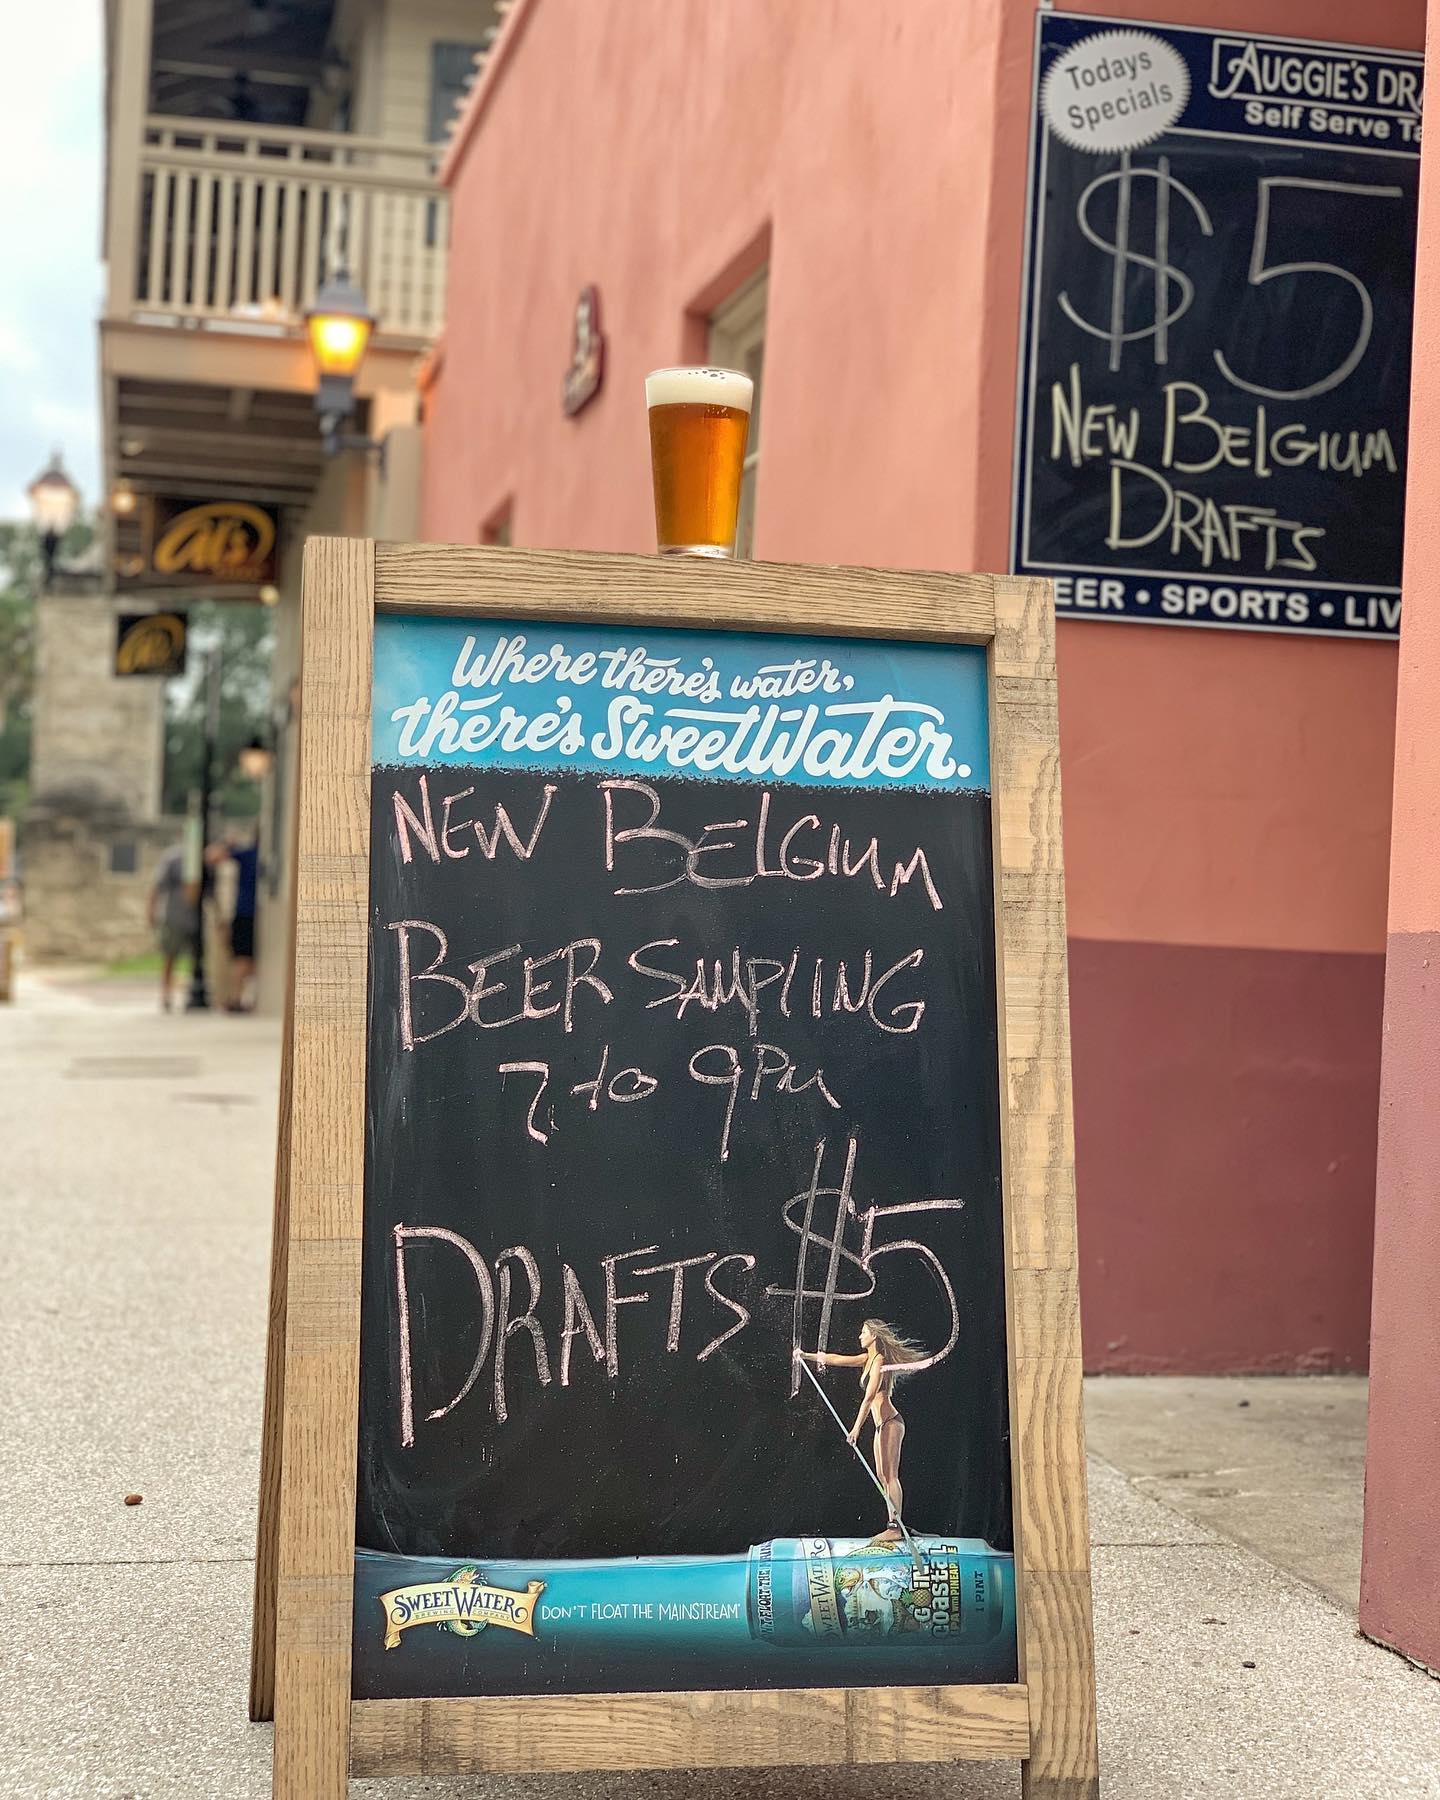 Todays
Specials
AUGGIE'S DR
Self Serve Ta
$5
NEW BELGIUM
DRAFTS
EER • SPORTS • LIV
Al's
Where there's water,
there's SweetWater.
NEW BELGIUM
BEER SAMPLING
7 to 9PM
DRAFTS $5
SWEETWATER
BREWING COMPANY
DON'T FLOAT THE MAINSTREAM
SWEETWATER
GOIN'
Coastal
IPA WITH PINEAPPLE
1 PINT